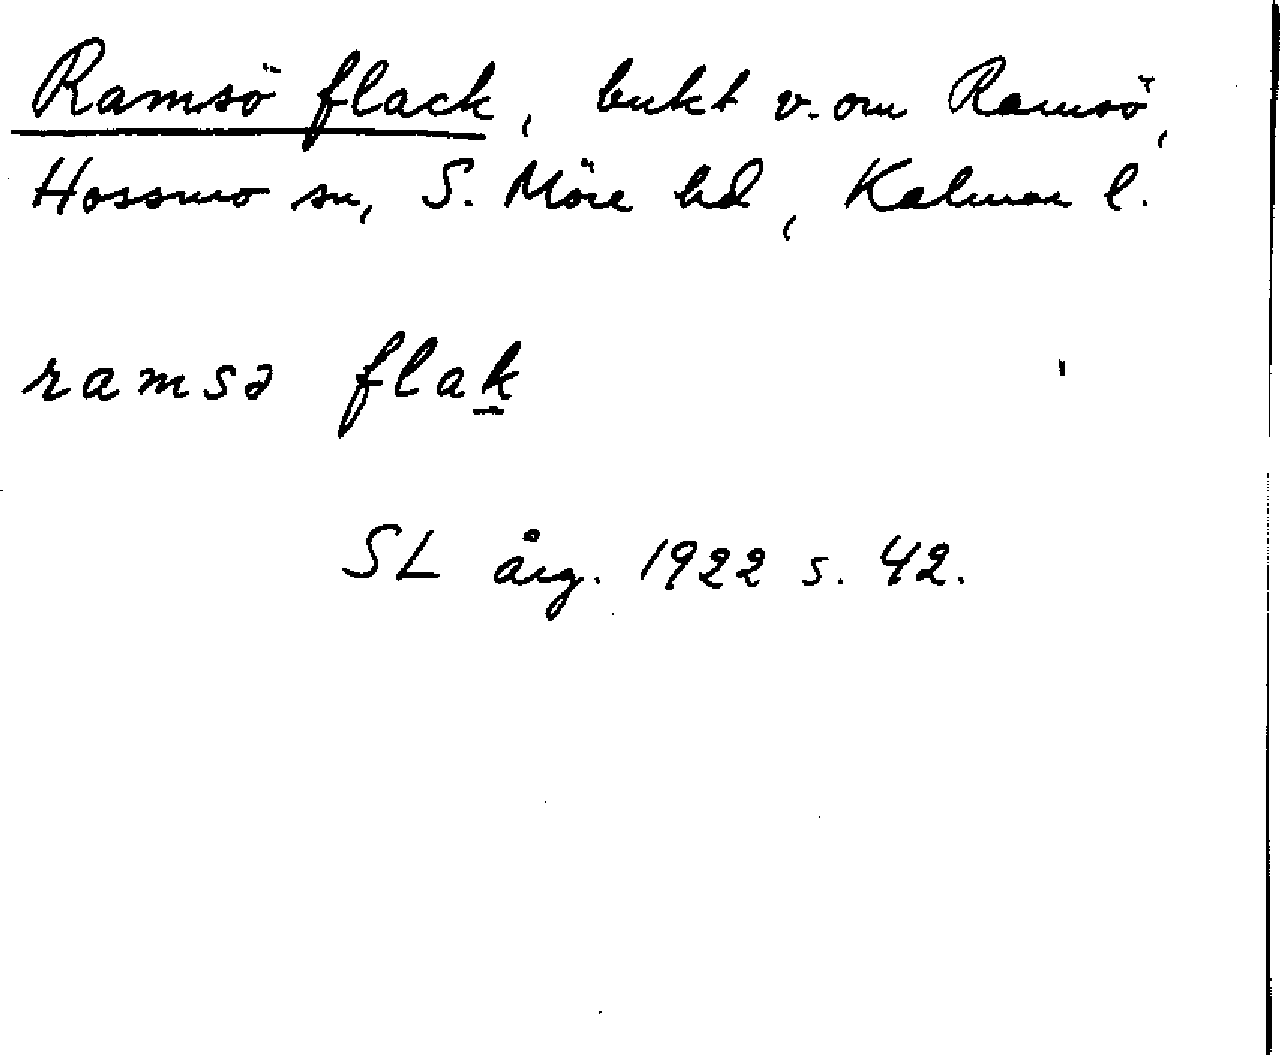 Ramsö flack, bukt v. om Ramsö,
Hossmo sn, S. Möre hd, Kalmar l.
ramsə flak̲
SL årg. 1922 s. 42.